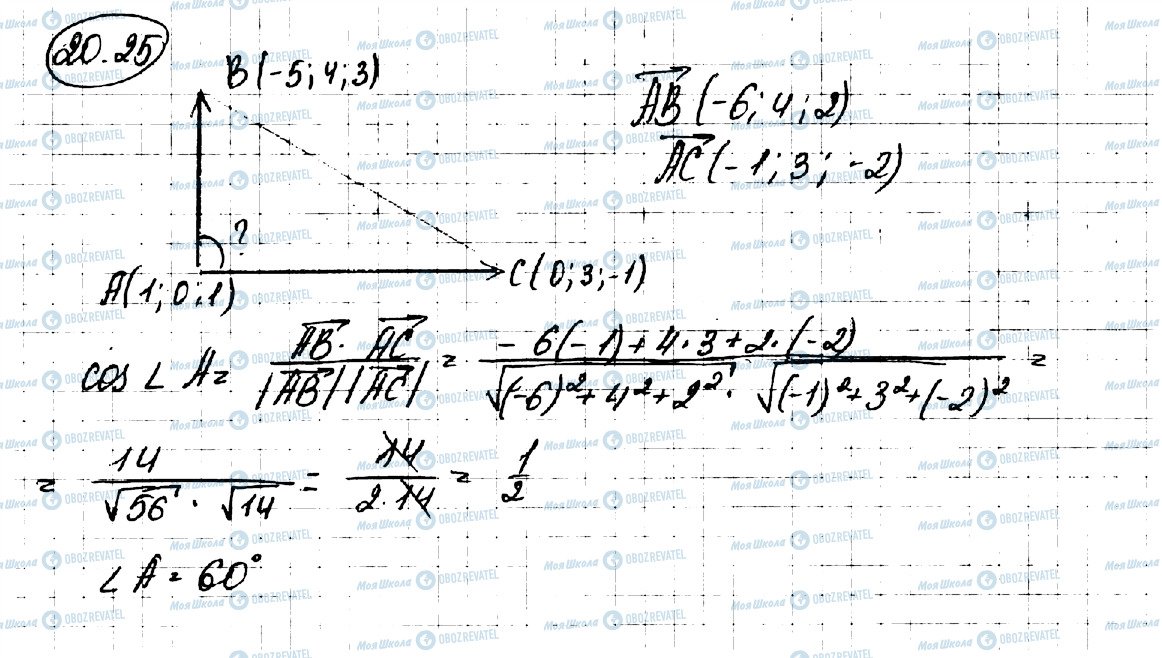 20.25
B(-5; 4; 3)
AB(-6; 4; 2)
AC(-1; 3; -2)
?
A(1; 0; 1)
C(0; 3; -1)
cos ∠ A = AB · AC / |AB| |AC| = -6(-1) + 4·3 + 2·(-2) / √(-6)² + 4² + 2² · √(-1)² + 3² + (-2)² =
= 14 / √56 · √14 = 14 / 2·14 = 1/2
∠ A = 60°
Моя Школа OBOZREVATEL